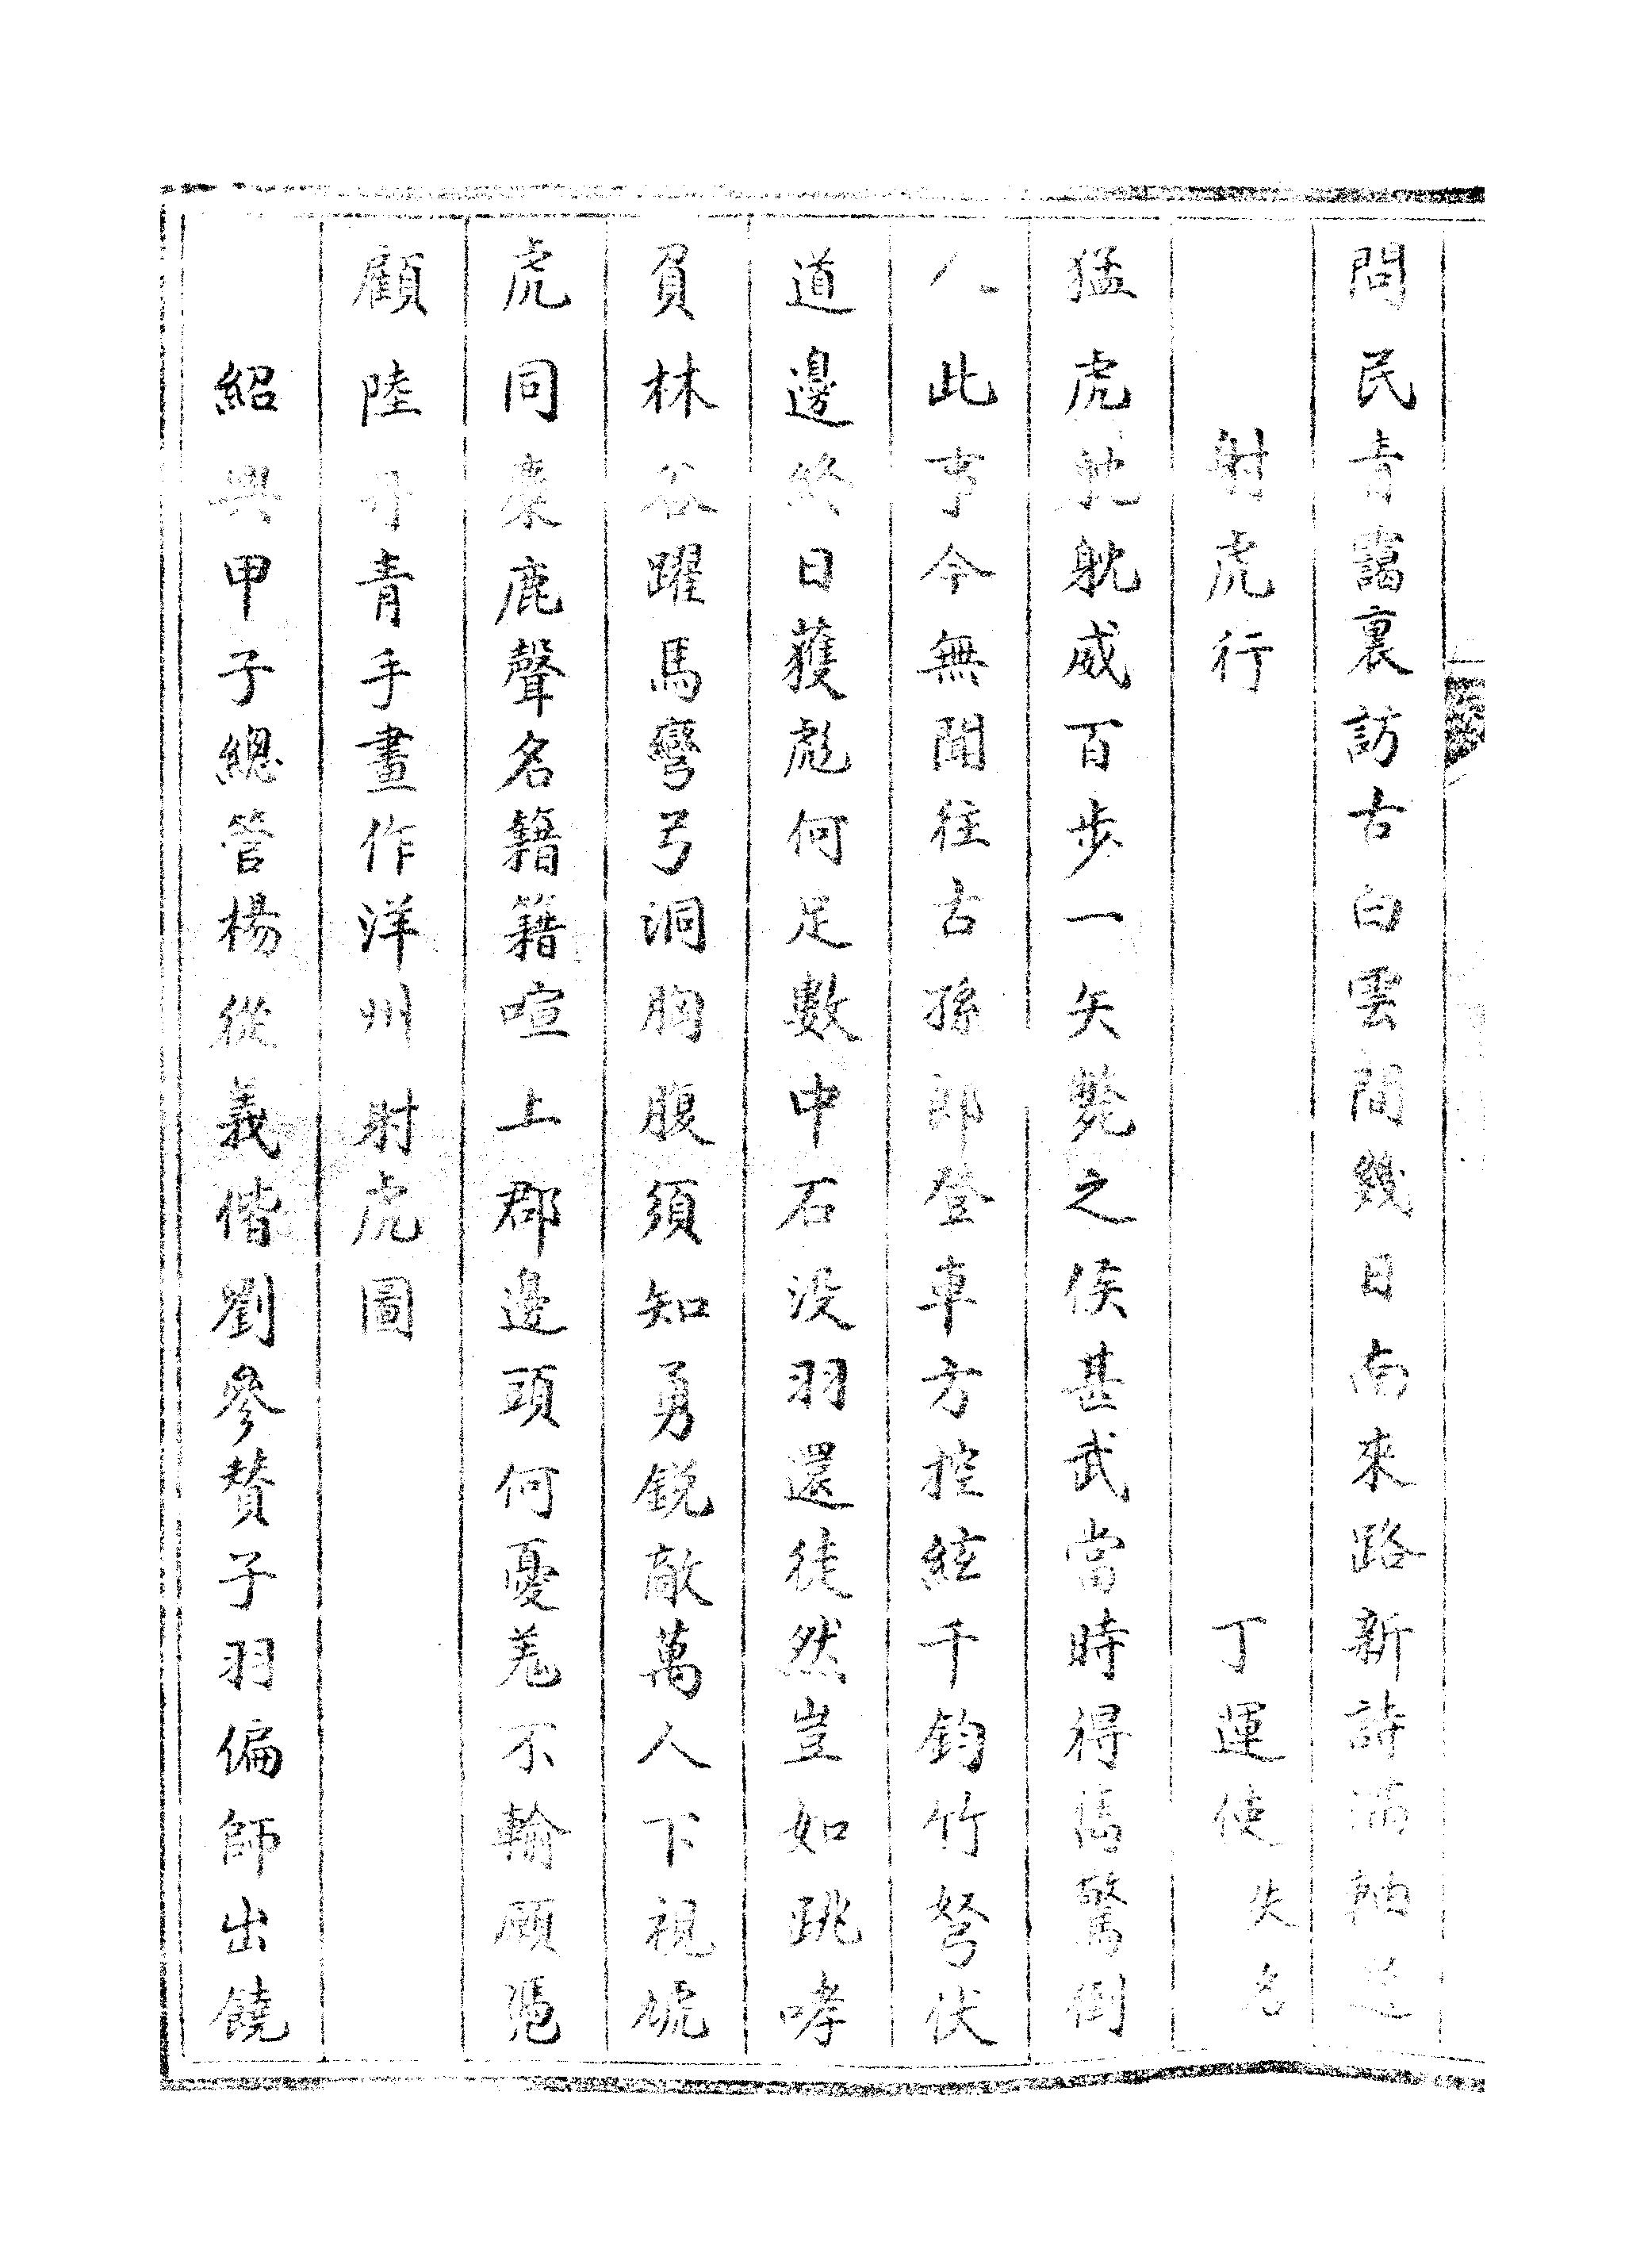 問民青靄裏訪古白雲間幾日南來路新詩滿軸還
射虎行 丁運使失名
猛虎躭躭威百步一矢斃之侯甚武當時得雋驚倒
人此事今無聞往古孫郎登車方控絃千鈞竹弩伏
道邊終日獲彪何足數中石没羽還徒然豈如跳哮
負林谷躍馬彎弓洞胸腹須知勇銳敵萬人下視虓
虎同麋鹿聲名籍籍喧上郡邊頭何憂羗不輸願憑
顧陸丹青手畫作洋州射虎圖
紹興甲子總管楊從義偕劉參贊子羽偏師出饒